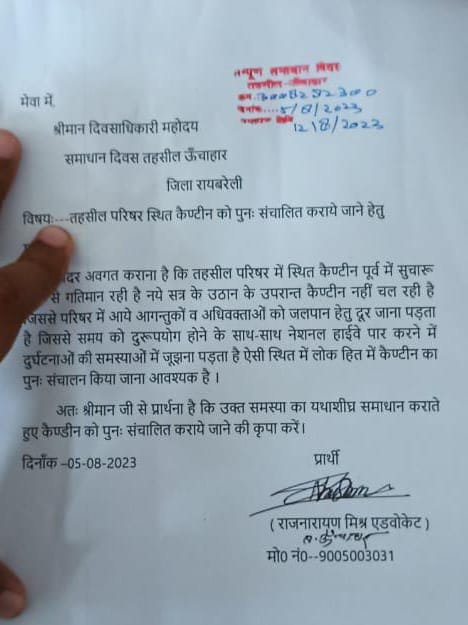 सम्पूर्ण समाधान दिवस
तहसील-ऊँचाहार
दिनांक....5/8/2023
12/8/2023
सेवा में,
श्रीमान दिवसाधिकारी महोदय
समाधान दिवस तहसील ऊँचाहार
जिला रायबरेली
विषयः---तहसील परिषर स्थित कैण्टीन को पुनः संचालित कराये जाने हेतु
अवगत कराना है कि तहसील परिषर में स्थित कैण्टीन पूर्व में सुचारू
से गतिमान रही है नये सत्र के उठान के उपरान्त कैण्टीन नहीं चल रही है
जिससे परिषर में आये आगन्तुकों व अधिवक्ताओं को जलपान हेतु दूर जाना पड़ता
है जिससे समय को दुरूपयोग होने के साथ-साथ नेशनल हाईवे पार करने में
दुर्घटनाओं की समस्याओं में जूझना पड़ता है ऐसी स्थित में लोक हित में कैण्टीन का
पुनः संचालन किया जाना आवश्यक है ।
अतः श्रीमान जी से प्रार्थना है कि उक्त समस्या का यथाशीघ्र समाधान कराते
हुए कैण्डीन को पुनः संचालित कराये जाने की कृपा करें।
दिनाँक –05-08-2023
प्रार्थी
( राजनारायण मिश्र एडवोकेट )
मो0 नं0--9005003031